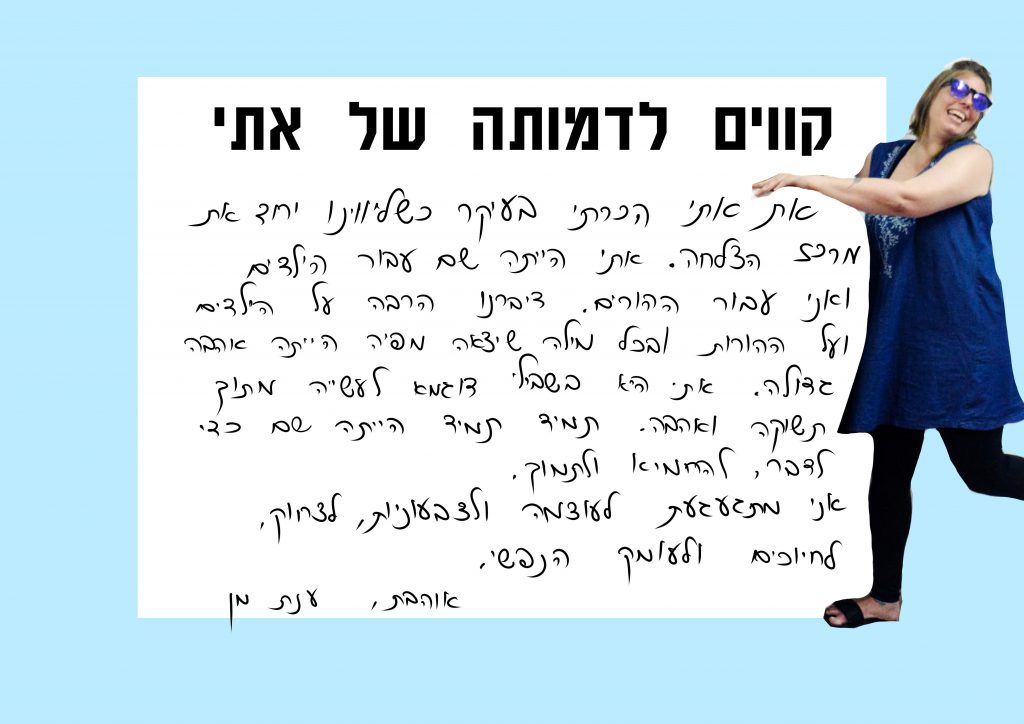 קווים לדמותה של אתי
את אתי הכרתי בעיקר כשליווינו יחד את
מרכז הצלחה. אתי הייתה שם עבור הילדים
ואני עבור ההורים. דיברנו הרבה על הילדים
ועל ההורות ובכל מילה שיצאה מפיה הייתה אהבה
גדולה. אתי היא בשבילי דוגמא לעשייה מתוך
תשוקה ואהבה. תמיד תמיד הייתה שם כדי
לדבר, להחמיא ולתמוך.
אני מתגעגעת לעוצמה ולצבעוניות, לצחוק,
לחיוכים ולעומק הנפשי.
אוהבת, ענת מן